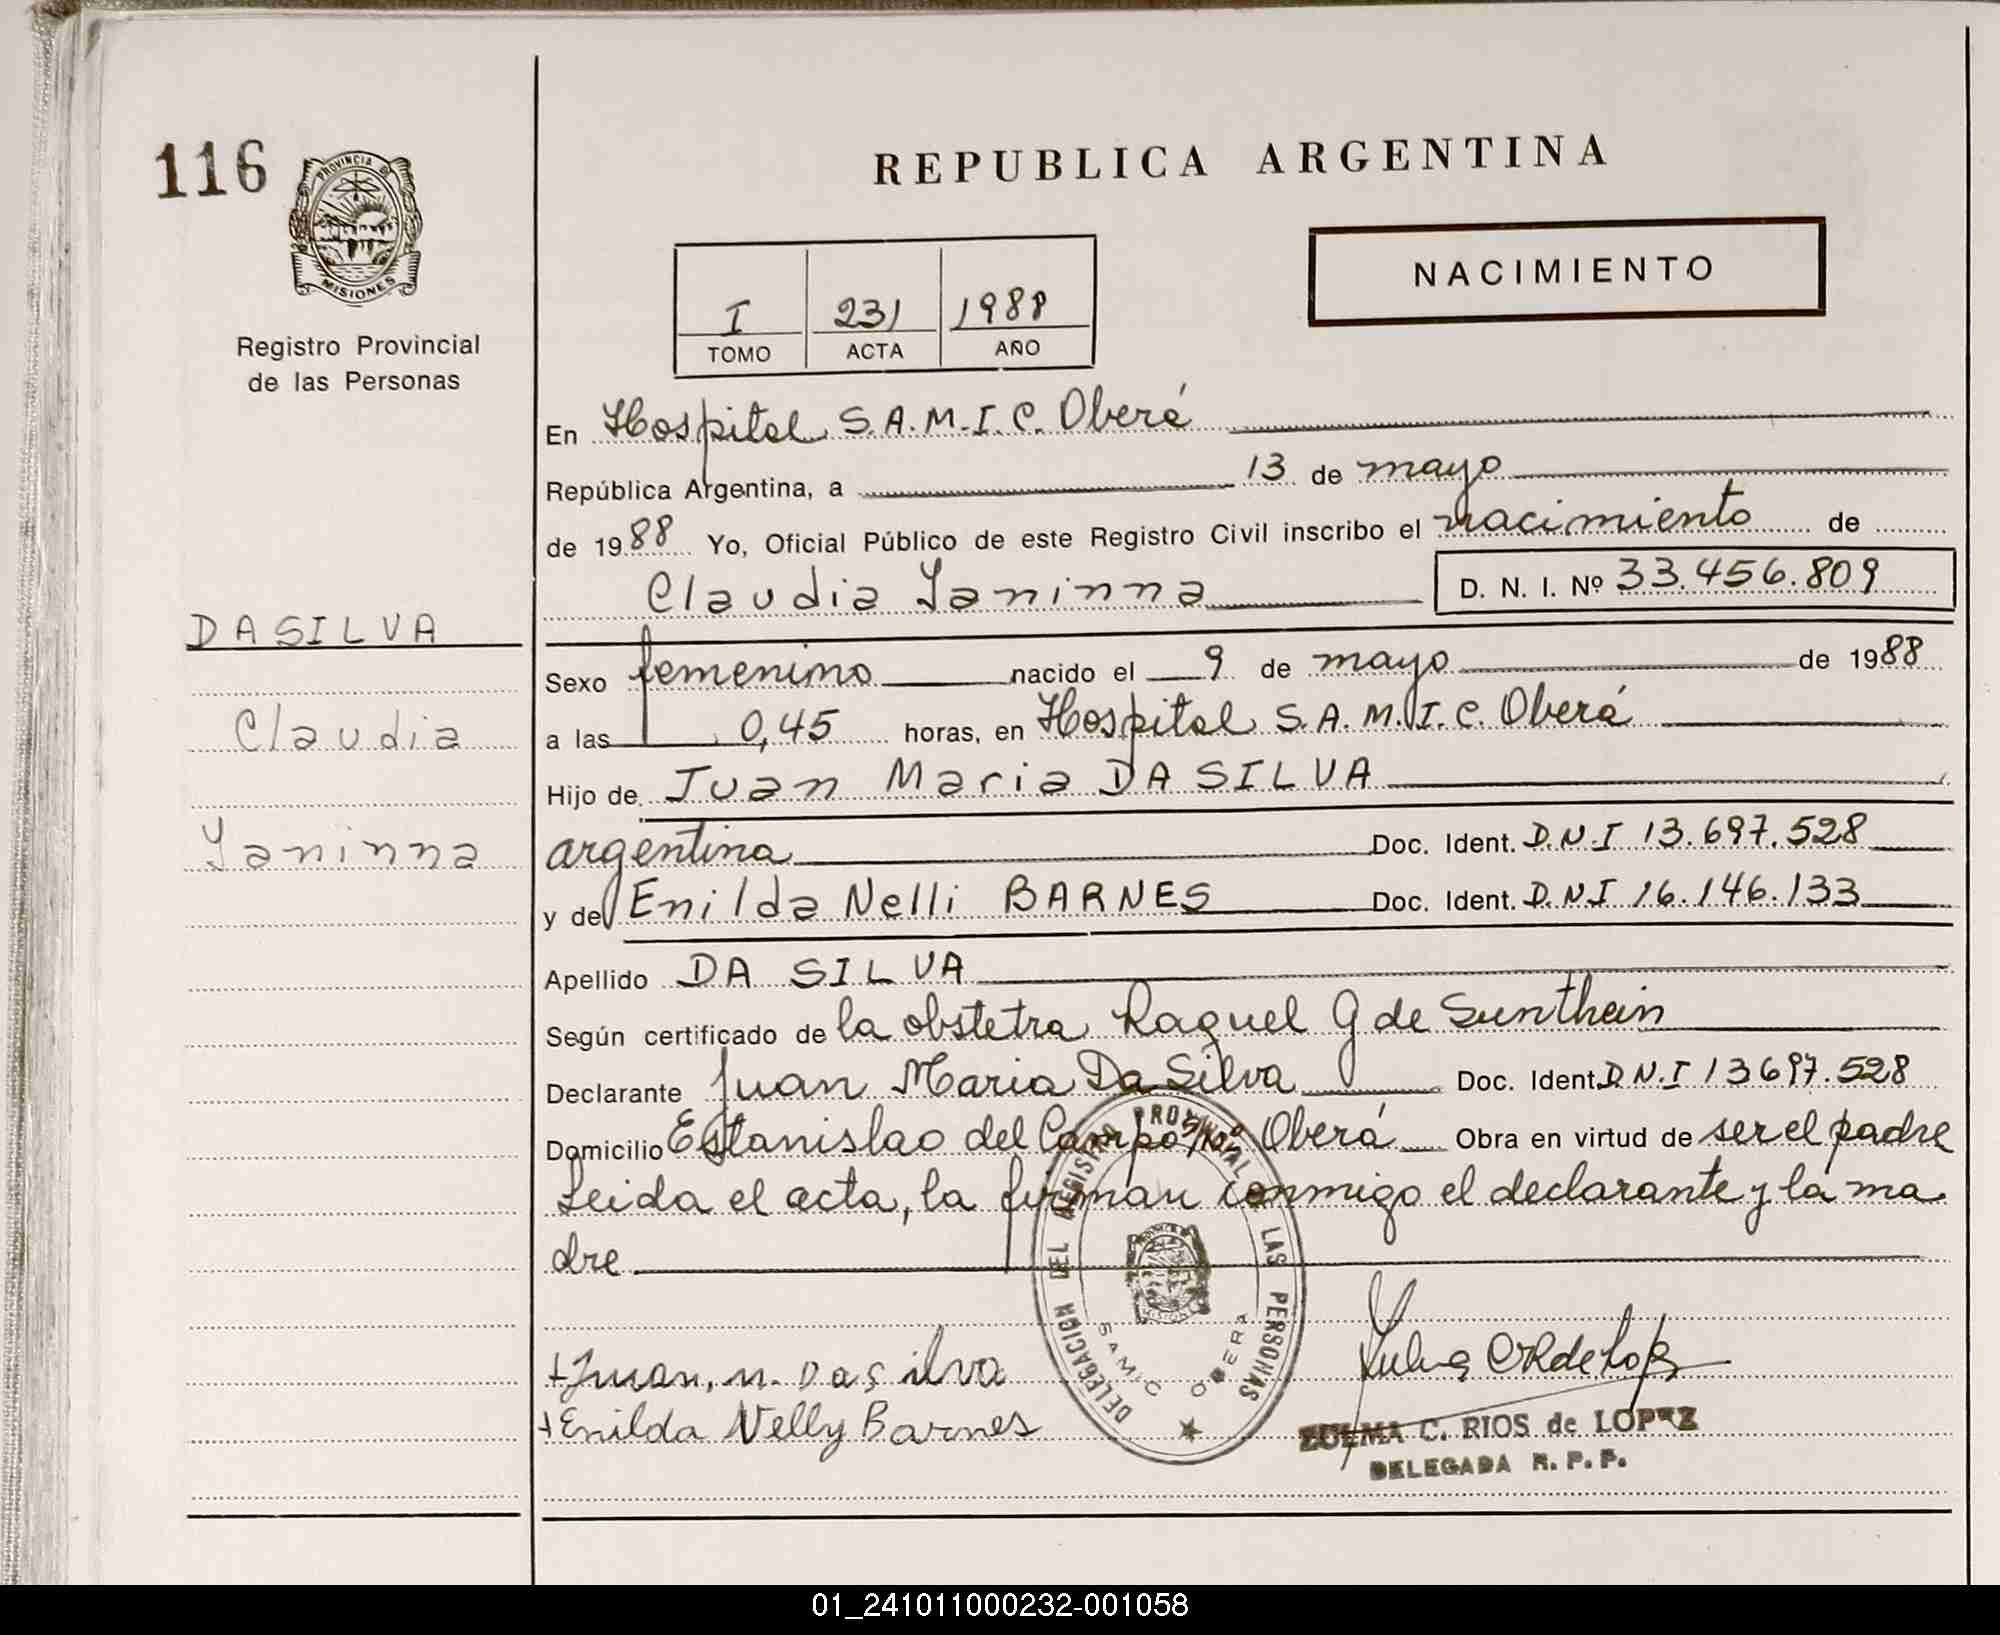 116
PROVINCIA DE
MISIONES
Registro Provincial
de las Personas
DA SILVA
Claudia
Yaninna
REPUBLICA ARGENTINA
NACIMIENTO
I 231 1988
TOMO ACTA AÑO
En Hospital S.A.M.I.C. Oberá
República Argentina, a 13 de mayo
de 1988 Yo, Oficial Público de este Registro Civil inscribo el nacimiento de
Claudia Yaninna D. N. I. Nº 33.456.809
Sexo femenino nacido el 9 de mayo de 1988
a las 0,45 horas, en Hospital S.A.M.I.C. Oberá
Hijo de Juan Maria DA SILVA
argentina Doc. Ident. D.N.I 13.697.528
y de Enilda Nelli BARNES Doc. Ident. D.N.I 16.146.133
Apellido DA SILVA
Según certificado de la obstetra Raquel G de Sunthein
Declarante Juan Maria Da Silva Doc. Ident. D.N.I 13697.528
Domicilio Estanislao del Campo s/nº Oberá Obra en virtud de ser el padre
Leida el acta, la firman conmigo el declarante y la ma
dre
DELEGACION DEL REGISTRO PROVINCIAL LAS PERSONAS
SAMIC OBERA
+Juan. M. Da Silva
+Enilda Nelly Barnes
ZULMA C. RIOS de LOPEZ
DELEGADA R. P. P.
01_241011000232-001058